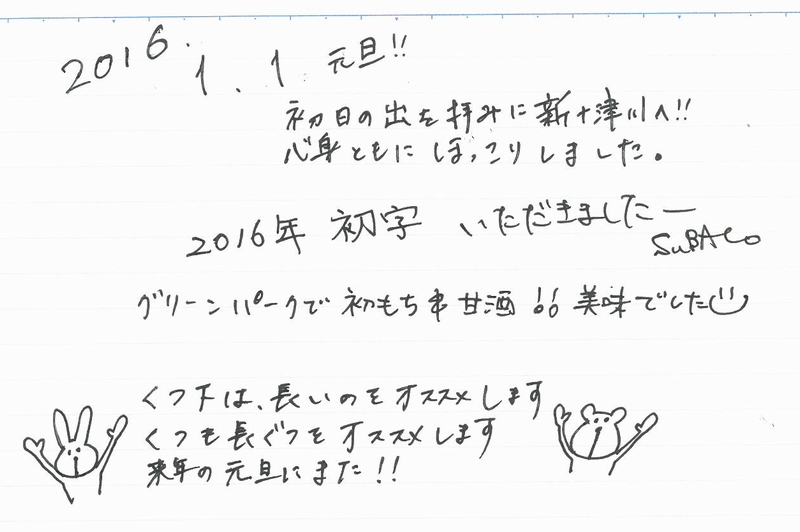 2016.
1.1 元旦!!
初日の出を拝みに新十津川へ!!
心身ともにほっこりしました。
2016年 初字 いただきましたー
SuBACo
グリーンパークで初もち串甘酒!!美味でした
くつ下は、長いのをオススメします
くつも長ぐつをオススメします
来年の元旦にまた!!